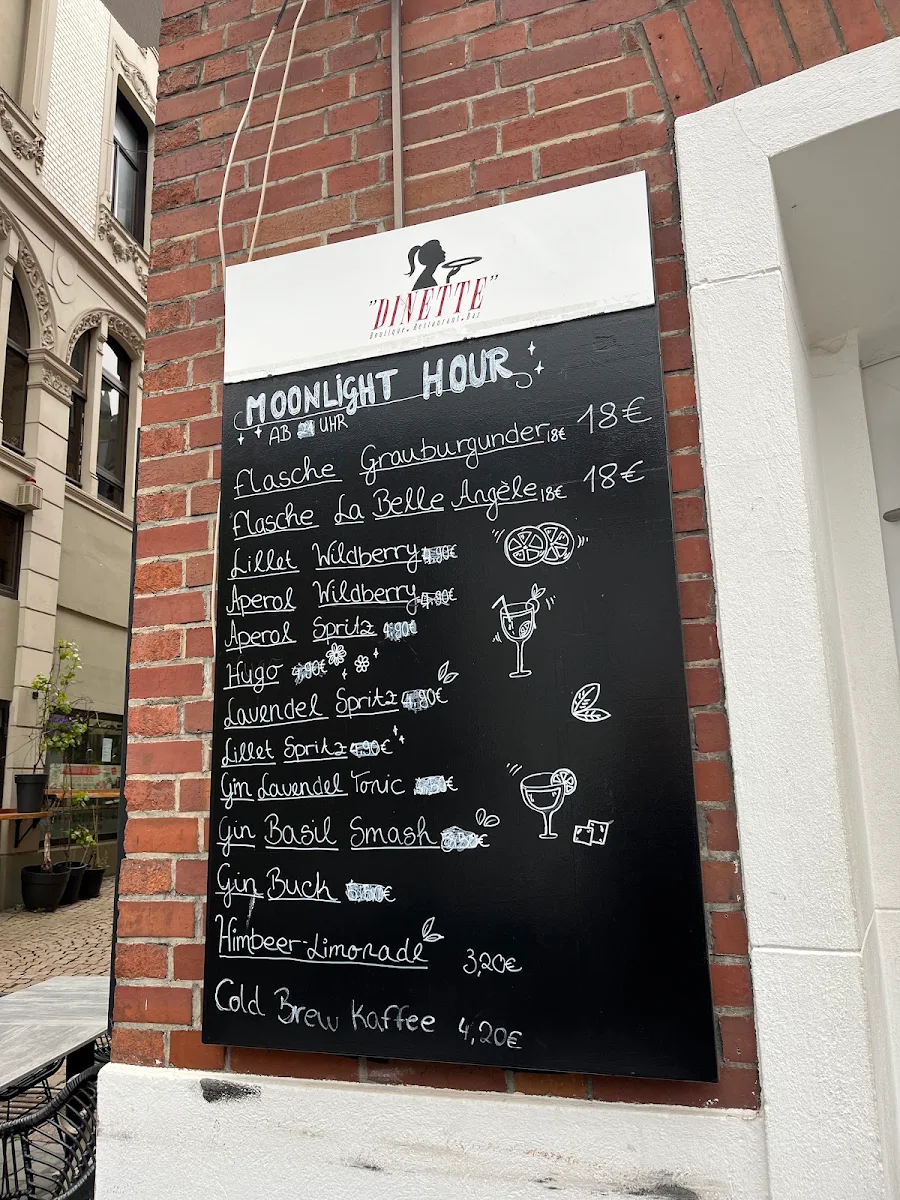 "DINETTE"
Boutique. Restaurant. Bar
MOONLIGHT HOUR
AB UHR
Flasche Grauburgunder 18€ 18€
Flasche La Belle Angèle 18€ 18€
Lillet Wildberry 4,90€
Aperol Wildberry 4,90€
Aperol Spritz 4,90€
Hugo 4,90€
Lavendel Spritz 4,90€
Lillet Spritz 4,90€
Gin Lavendel Tonic €
Gin Basil Smash €
Gin Buck €
Himbeer-Limonade 3,20€
Cold Brew Kaffee 4,20€